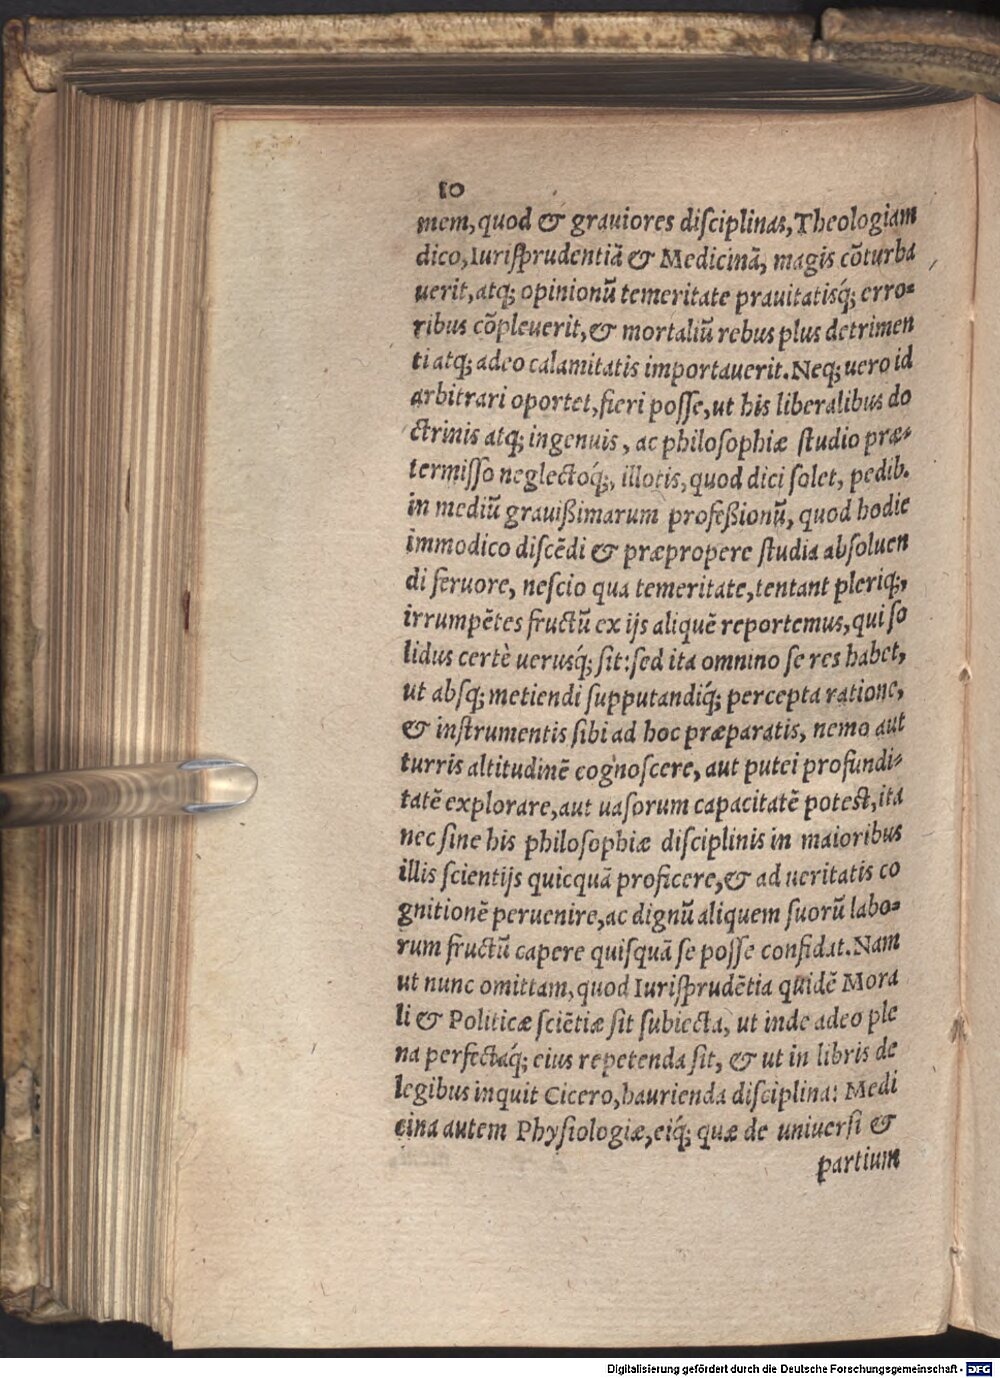 10
mem, quod & grauiores diſciplinas, Theologiam
dico, Iuriſprudentiã & Medicinã, magis cõturba
uerit, atq; opinionũ temeritate prauitatisq́; erro-
ribus cõpleuerit, & mortaliũ rebus plus detrimen
ti atq; adeo calamitatis importauerit. Neq; uero id
arbitrari oportet, fieri poſſe, ut his liberalibus do
ctrinis atq; ingenuis, ac philoſophiæ ſtudio præ-
termiſſo neglectoq́;, illotis, quod dici ſolet, pedib.
in mediũ grauißimarum profeßionũ, quod hodie
immodico diſcẽdi & præpropere ſtudia abſoluen
di feruore, neſcio qua temeritate, tentant pleriq;,
irrumpẽtes fructũ ex ijs aliquẽ reportemus, qui ſo
lidus certè uerusq́; ſit: ſed ita omnino ſe res habet,
ut abſq; metiendi ſupputandiq́; percepta ratione,
& inſtrumentis ſibi ad hoc præparatis, nemo aut
turris altitudinẽ cognoſcere, aut putei profundi-
tatẽ explorare, aut uaſorum capacitatẽ poteſt, ita
nec ſine his philoſophiæ diſciplinis in maioribus
illis ſcientijs quicquã proficere, & ad ueritatis co
gnitionẽ peruenire, ac dignũ aliquem ſuorũ labo-
rum fructũ capere quiſquã ſe poſſe confidat. Nam
ut nunc omittam, quod Iuriſprudẽtia quidẽ Mora
li & Politicæ ſciẽtiæ ſit ſubiecta, ut inde adeo ple
na perfectaq́; eius repetenda ſit, & ut in libris de
legibus inquit Cicero, haurienda diſciplina: Medi
cina autem Phyſiologiæ, eiq́; quæ de uniuerſi &
partium
Digitalisierung gefördert durch die Deutsche Forschungsgemeinschaft - DFG